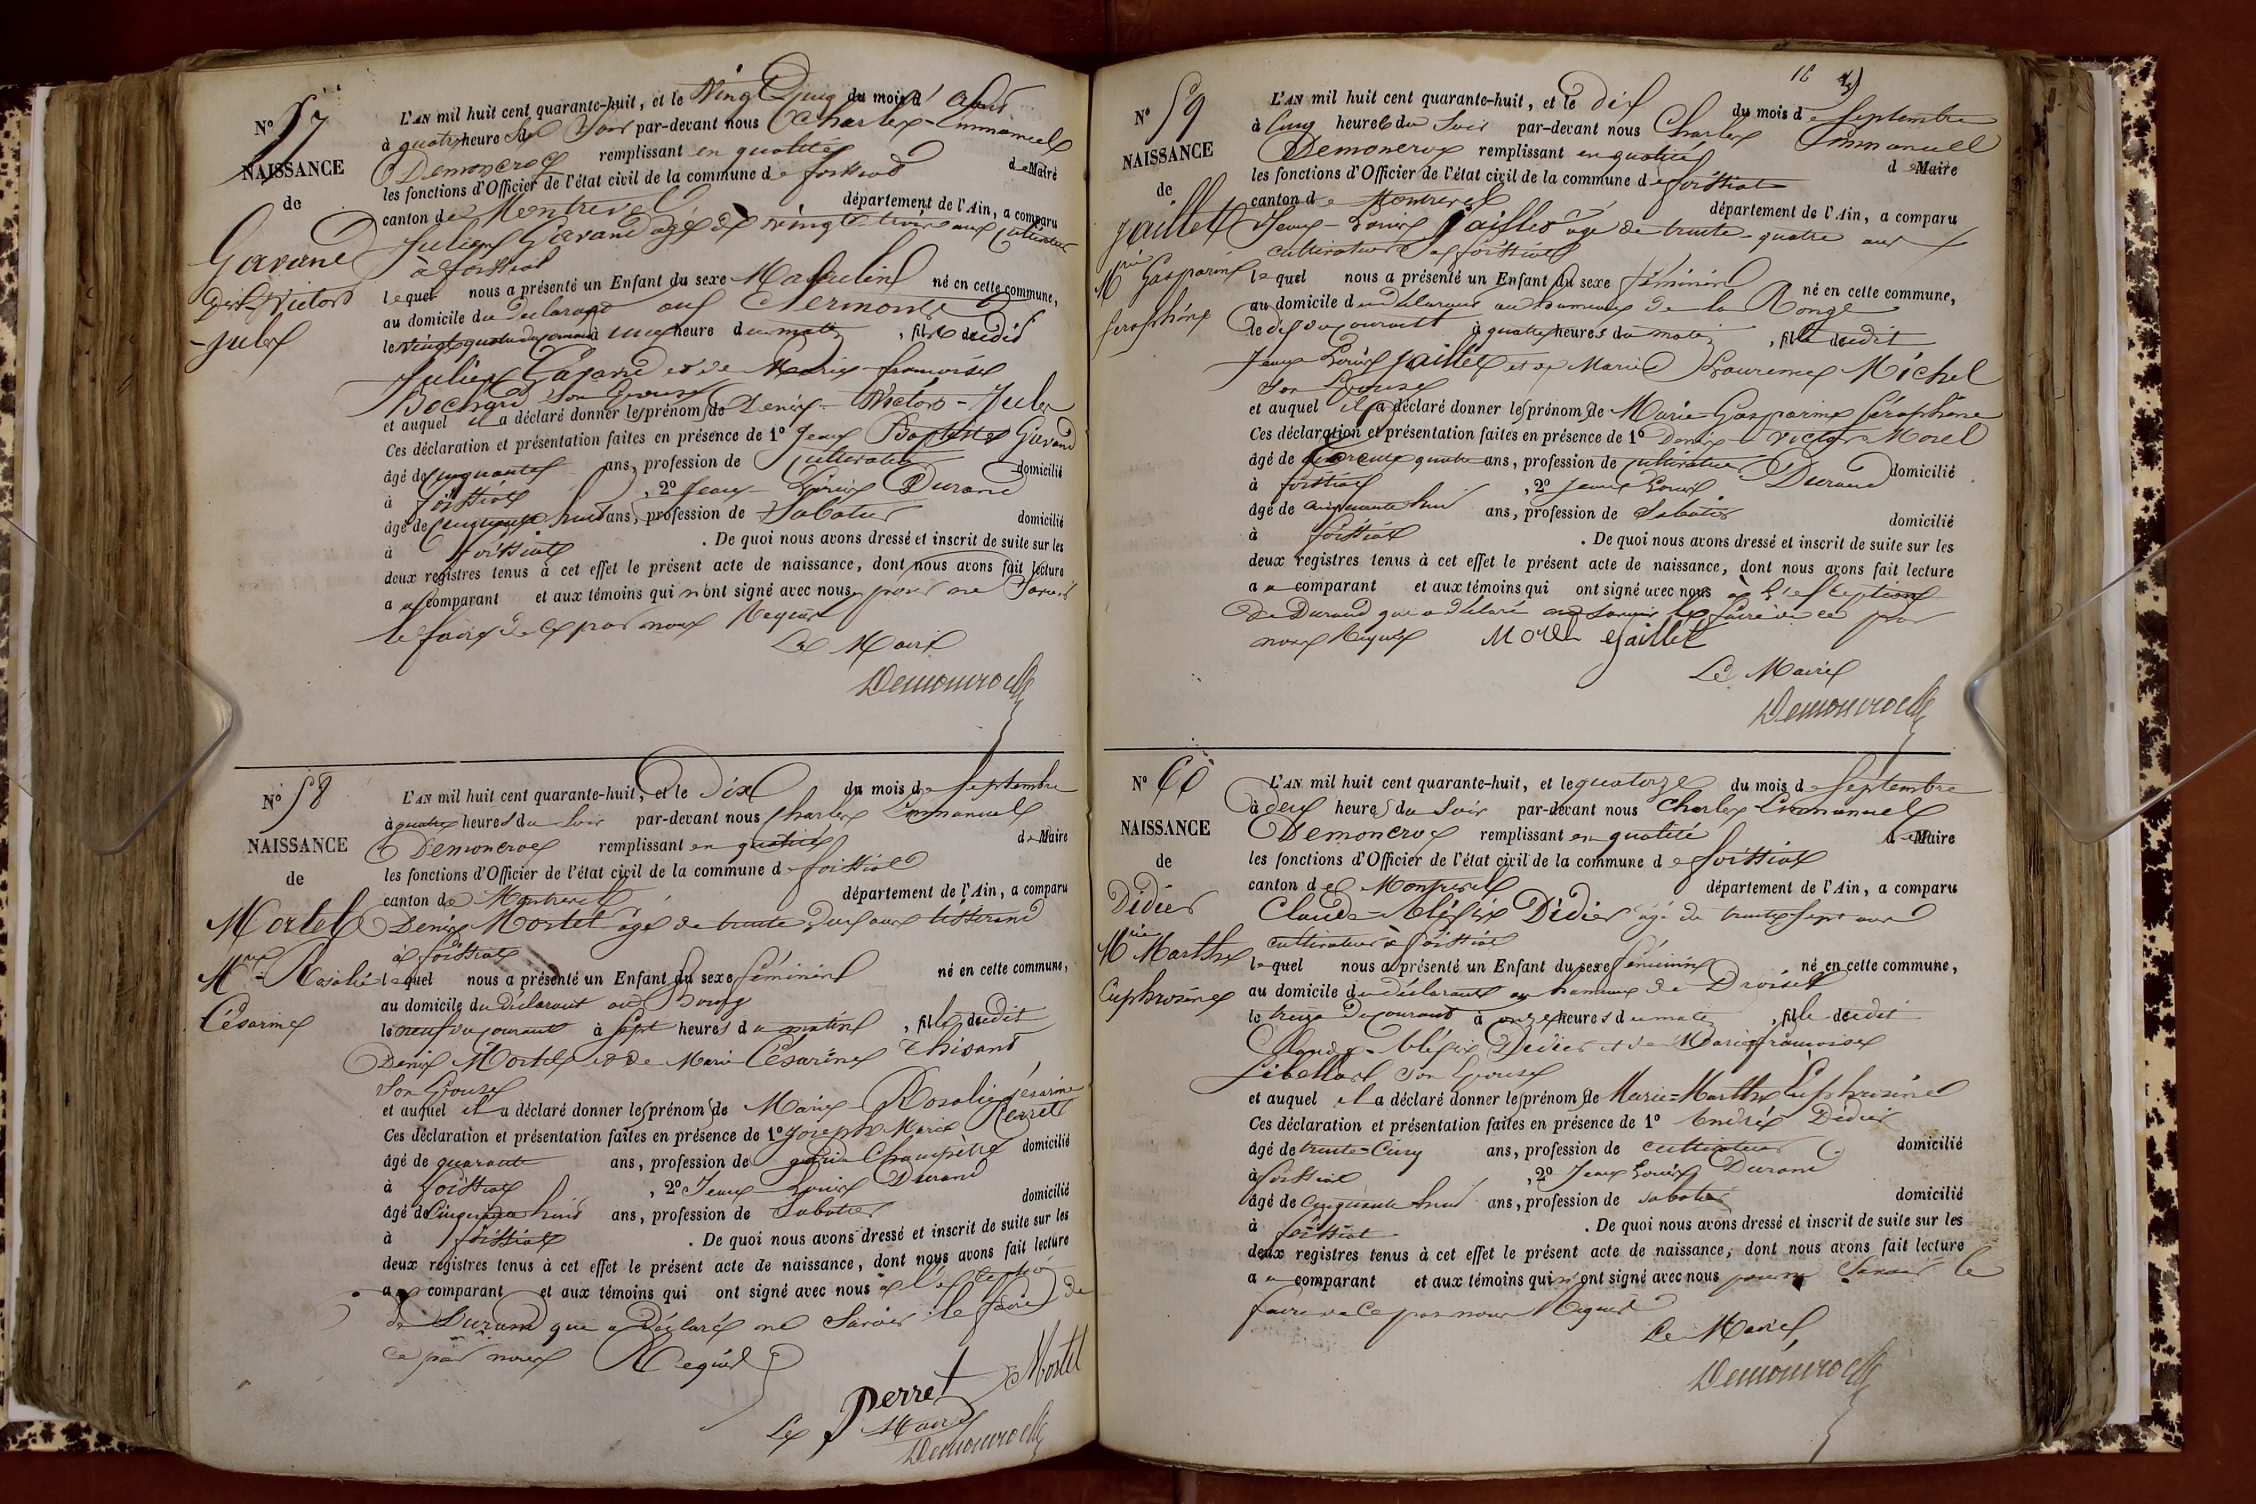 N° 57
NAISSANCE
de
Gavand
Denis Victor
Jules
L'AN mil huit cent quarante-huit, et le Vingt Cinq du mois d' Août
à quatre heures du Soir par-devant nous Charles Emmanuel
Demoncroix remplissant en qualité de Maire
les fonctions d'Officier de l'état civil de la commune de foissiat
canton de Montrevel département de l'Ain, a comparu
Julien Gavand agé de vingt-trois ans Cultivateur
à foissiat
lequel nous a présenté un Enfant du sexe Masculin né en cette commune,
au domicile du declarant au Clermont
le vingt quatre du courant à une heure du matin, fils dudit
Julien Gavand et de Marie françoise
Bochard son Epouse
et auquel il a déclaré donner les prénoms de Denis-Victor-Jules
Ces déclaration et présentation faites en présence de 1° Jean Baptiste Gavand
âgé de cinquante ans, profession de Cultivateur domicilié
à foissiat, 2° Jean-Louis Durand
âgé de Cinquante huit ans, profession de Sabotier domicilié
à foissiat. De quoi nous avons dressé et inscrit de suite sur les
deux registres tenus à cet effet le présent acte de naissance, dont nous avons fait lecture
au comparant et aux témoins qui n'ont signé avec nous pour ne Savoir
le faire de ce par nous Requis
Le Maire
Demoncroix
N° 58
NAISSANCE
de
Mortel
Mie Rosalie
Césarine
L'AN mil huit cent quarante-huit, et le Dix du mois de Septembre
à quatre heures du Soir par-devant nous Charles Emmanuel
Demoncroix remplissant en qualité de Maire
les fonctions d'Officier de l'état civil de la commune de foissiat
canton de Montrevel département de l'Ain, a comparu
Denis Mortel âgé de trente deux ans tisserand
à foissiat
lequel nous a présenté un Enfant du sexe féminin né en cette commune,
au domicile du déclarant au Bourg
le neuf du courant à sept heures du matin, fille dudit
Denis Mortel et de Marie Césarine Thisand
Son Epouse
et auquel il a déclaré donner les prénoms de Marie Rosalie Césarine
Ces déclaration et présentation faites en présence de 1° Joseph Marie Perret
âgé de quarante ans, profession de garde Champêtre domicilié
à foissiat, 2° Jean Louis Durand
âgé de Cinquante huit ans, profession de Sabotier domicilié
à foissiat. De quoi nous avons dressé et inscrit de suite sur les
deux registres tenus à cet effet le présent acte de naissance, dont nous avons fait lecture
au comparant et aux témoins qui ont signé avec nous à l'exception
de Durand qui a déclaré ne Savoir le faire de
ce par nous Requis
Perret Mortel
Le Maire
Demoncroix
16
N° 59
NAISSANCE
de
Jaillet
Mie Gasparine
Séraphine
L'AN mil huit cent quarante-huit, et le dix du mois de Septembre
à Cinq heures du Soir par-devant nous Charles Emmanuel
Demoncroix remplissant en qualité de Maire
les fonctions d'Officier de l'état civil de la commune de foissiat
canton de Montrevel département de l'Ain, a comparu
Jean-Louis Jaillet âgé de trente-quatre ans
cultivateur à foissiat
lequel nous a présenté un Enfant du sexe féminin né en cette commune,
au domicile du déclarant au hameau de la Ronge
le dix du courant à quatre heures du matin, fille dudit
Jean Louis Jaillet et de Marie Laurence Michel
Son Epouse
et auquel il a déclaré donner les prénoms de Marie-Gasparine Séraphine
Ces déclaration et présentation faites en présence de 1° Denis-Victor Morel
âgé de trente quatre ans, profession de cultivateur domicilié
à foissiat, 2° Jean Louis Durand
âgé de cinquante huit ans, profession de Sabotier domicilié
à foissiat. De quoi nous avons dressé et inscrit de suite sur les
deux registres tenus à cet effet le présent acte de naissance, dont nous avons fait lecture
au comparant et aux témoins qui ont signé avec nous à l'exception
de Durand qui a déclaré ne Savoir le faire de ce par
nous Requis Morel Jaillet
Le Maire
Demoncroix
N° 60
NAISSANCE
de
Didier
Mie Marthe
Euphrosine
L'AN mil huit cent quarante-huit, et le quatorze du mois de Septembre
à deux heures du Soir par-devant nous Charles Emmanuel
Demoncroix remplissant en qualité de Maire
les fonctions d'Officier de l'état civil de la commune de foissiat
canton de Montrevel département de l'Ain, a comparu
Claude-Aléxis Didier âgé de trente sept ans
cultivateur à foissiat
lequel nous a présenté un Enfant du sexe féminin né en cette commune,
au domicile du déclarant au hameau de Droiset
le treize du courant à onze heures du matin, fille dudit
Claude-Aléxis Didier et de Marie françoise
Libellard son Epouse
et auquel il a déclaré donner les prénoms de Marie=Marthe Euphrosine
Ces déclaration et présentation faites en présence de 1° André Didier
âgé de trente-Cinq ans, profession de cultivateur domicilié
à foissiat, 2° Jean Louis Durand
âgé de Cinquante huit ans, profession de sabotier domicilié
à foissiat. De quoi nous avons dressé et inscrit de suite sur les
deux registres tenus à cet effet le présent acte de naissance, dont nous avons fait lecture
au comparant et aux témoins qui n'ont signé avec nous pour ne Savoir le
faire de ce par nous Requis
Le Maire
Demoncroix